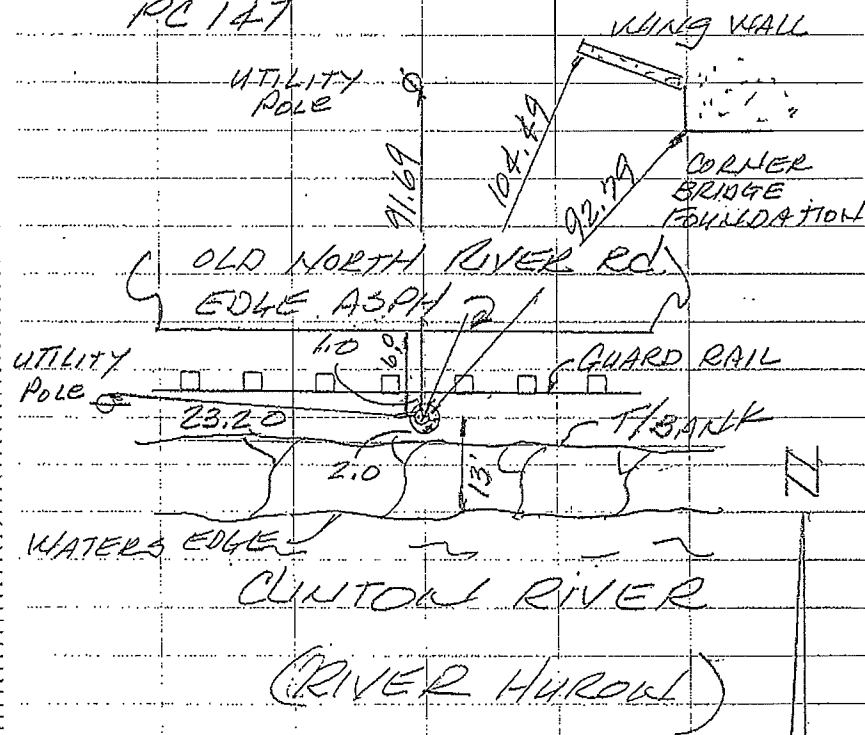 PC 147
WING WALL
UTILITY
POLE
91.69
104.49
92.79
CORNER
BRIDGE
FOUNDATION
OLD NORTH RIVER RD.
EDGE ASPH
1.0
6.0
GUARD RAIL
UTILITY
POLE
23.20
T/BANK
2.0
13'
N
WATERS EDGE
CLINTON RIVER
(RIVER HURON)